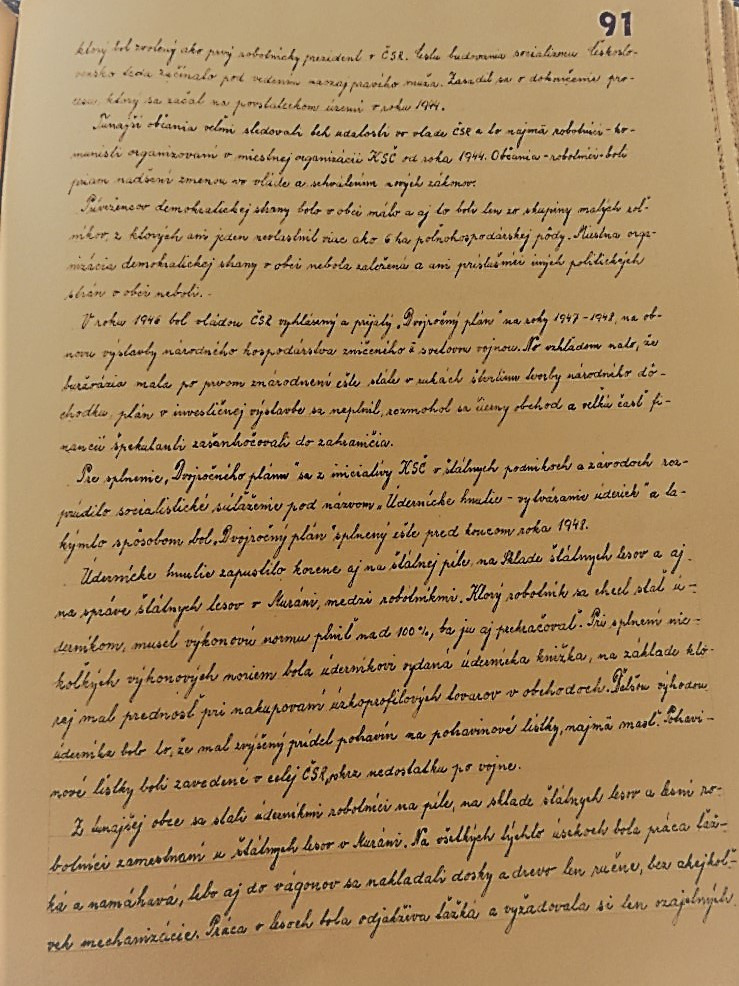 91
ktorý bol zvolený ako prvý robotnícky prezident v ČSR. Cestu budovania socializmu Českoslo-
vensko teda začínalo pod vedením naozaj pravého muža. Zasadil sa o dokončenie pro-
cesu, ktorý sa začal na povstaleckom území v roku 1944.
Tunajší občania veľmi sledovali beh udalostí vo vláde ČSR a to najmä robotníci-ko-
munisti organizovaní v miestnej organizácii KSČ od roka 1944. Občania-robotníci-boli
priam nadšení zmenou vo vláde a schválením nových zákonov.
Prívržencov demokratickej strany bolo v obci málo a aj to boli len zo skupiny malých roľ-
níkov, z ktorých ani jeden nevlastnil viac ako 6 ha poľnohospodárskej pôdy. Miestna orga-
nizácia demokratickej strany v obci nebola založená a ani príslušníci iných politických
strán v obci neboli. -
V roku 1946 bol vládou ČSR vyhlásený a prijatý „Dvojročný plán" na roky 1947-1948, na ob-
novu výstavby národného hospodárstva zničeného II svetovou vojnou. No vzhľadom nato, že
buržoázia mala po prvom znárodnení ešte stále v rukách štvrtinu tvorby národného dô-
chodku, plán v investičnej výstavbe sa neplnil, rozmohol sa čierny obchod a veľkú časť fi-
nancií špekulanti zašantročovali do zahraničia.
Pre splnenie „Dvojročného plánu" sa z iniciatívy KSČ v štátnych podnikoch a závodoch roz-
prúdilo socialistické súťaženie pod názvom „Údernícke hnutie - vytváranie úderiek" a ta-
kýmto spôsobom bol „Dvojročný plán" splnený ešte pred koncom roka 1948.
Údernícke hnutie zapustilo korene aj na štátnej píle, na Sklade štátnych lesov a aj
na správe štátnych lesov v Muráni, medzi robotníkmi. Ktorý robotník sa chcel stať ú-
derníkom, musel výkonovú normu plniť nad 100%, ba ju aj prekračovať. Pri splnení nie-
koľkých výkonových noriem bola úderníkovi vydaná údernícka knižka, na základe kto-
rej mal prednosť pri nakupovaní úzkoprofilových tovarov v obchodoch. Ďalšou výhodou
úderníka bolo to, že mal zvýšený prídel potravín na potravinové lístky, najmä masť. Potravi-
nové lístky boli zavedené v celej ČSR, skrz nedostatku po vojne.
Z tunajšej obce sa stali úderníkmi robotníci na píle, na sklade štátnych lesov a lesní ro-
botníci zamestnaní u štátnych lesov v Muráni. Na všetkých týchto úsekoch bola práca ťaž-
ká a namáhavá, lebo aj do vagónov sa nakladali dosky a drevo len ručne, bez akejkoľ-
vek mechanizácie. Práca v lesoch bola odjakživa ťažká a vyžadovala si len ozajstných